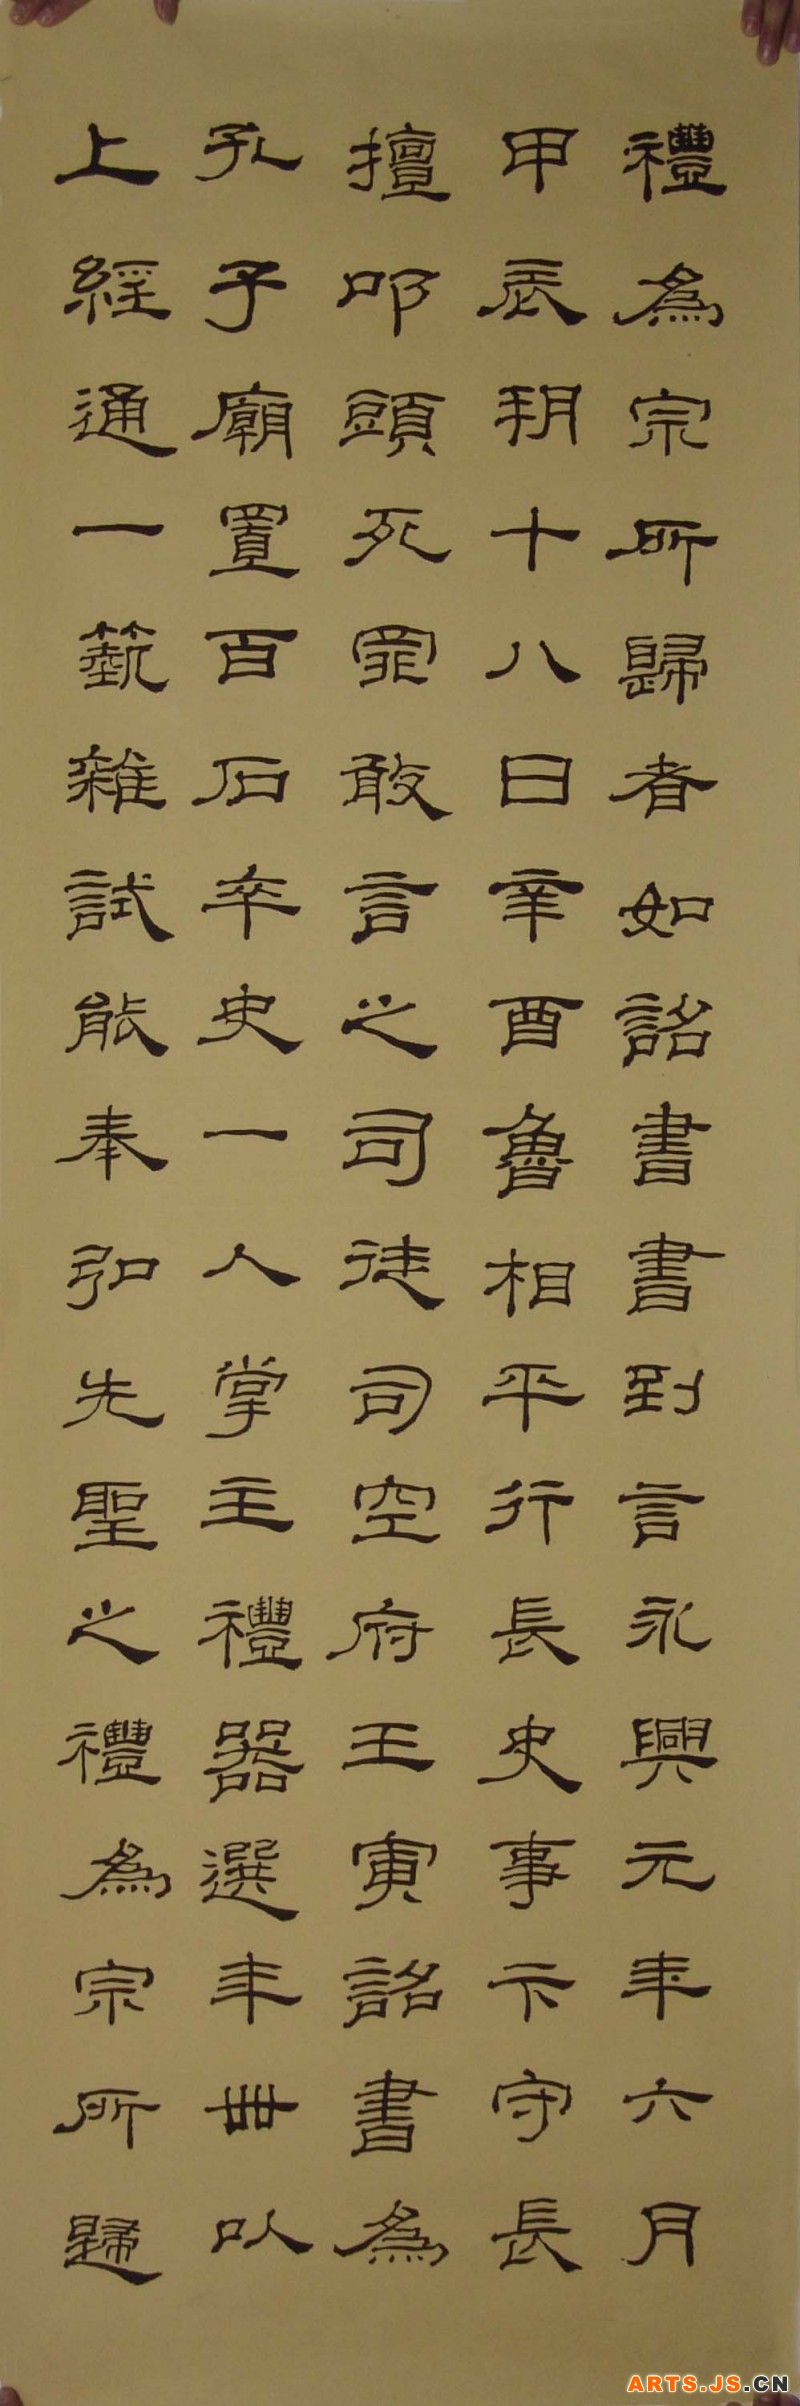 禮為宗所歸者如詔書書到言永興元年六月
甲辰朔十八日辛酉魯相平行長史事卞守長
擅叩頭死罪敢言之司徒司空府壬寅詔書為
孔子廟置百石卒史一人掌主禮器選年卌以
上經通一藝雜試能奉弘先聖之禮為宗所歸
ARTS.JS.CN